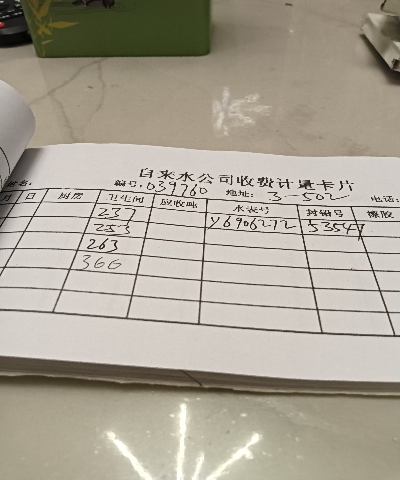 自来水公司收费计量卡片
姓名: 编号: 039760 地址: 3-502 电话:
月 日 厨房 卫生间 应收吨 水表号 封铅号
237 Y6906212 5354
253
263
366